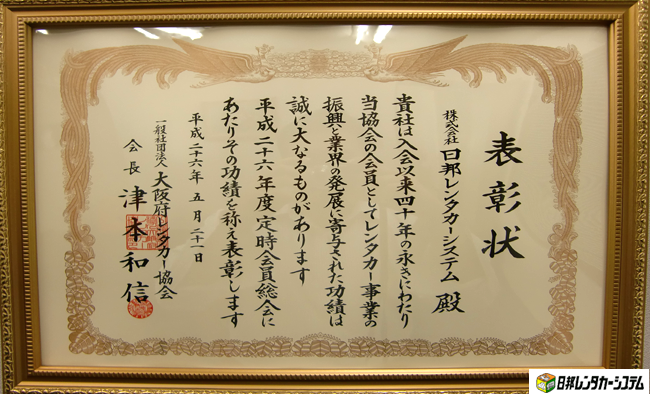 表彰状
株式会社 日邦レンタカーシステム 殿
貴社は入会以来四十年の永きにわたり
当協会の会員としてレンタカー事業の
振興と業界の発展に寄与された功績は
誠に大なるものがあります
平成二十六年度定時会員総会に
あたりその功績を称え表彰します
平成二十六年 五月 二十一日
一般社団法人 大阪府レンタカー協会
会長 津本和信
日邦レンタカーシステム